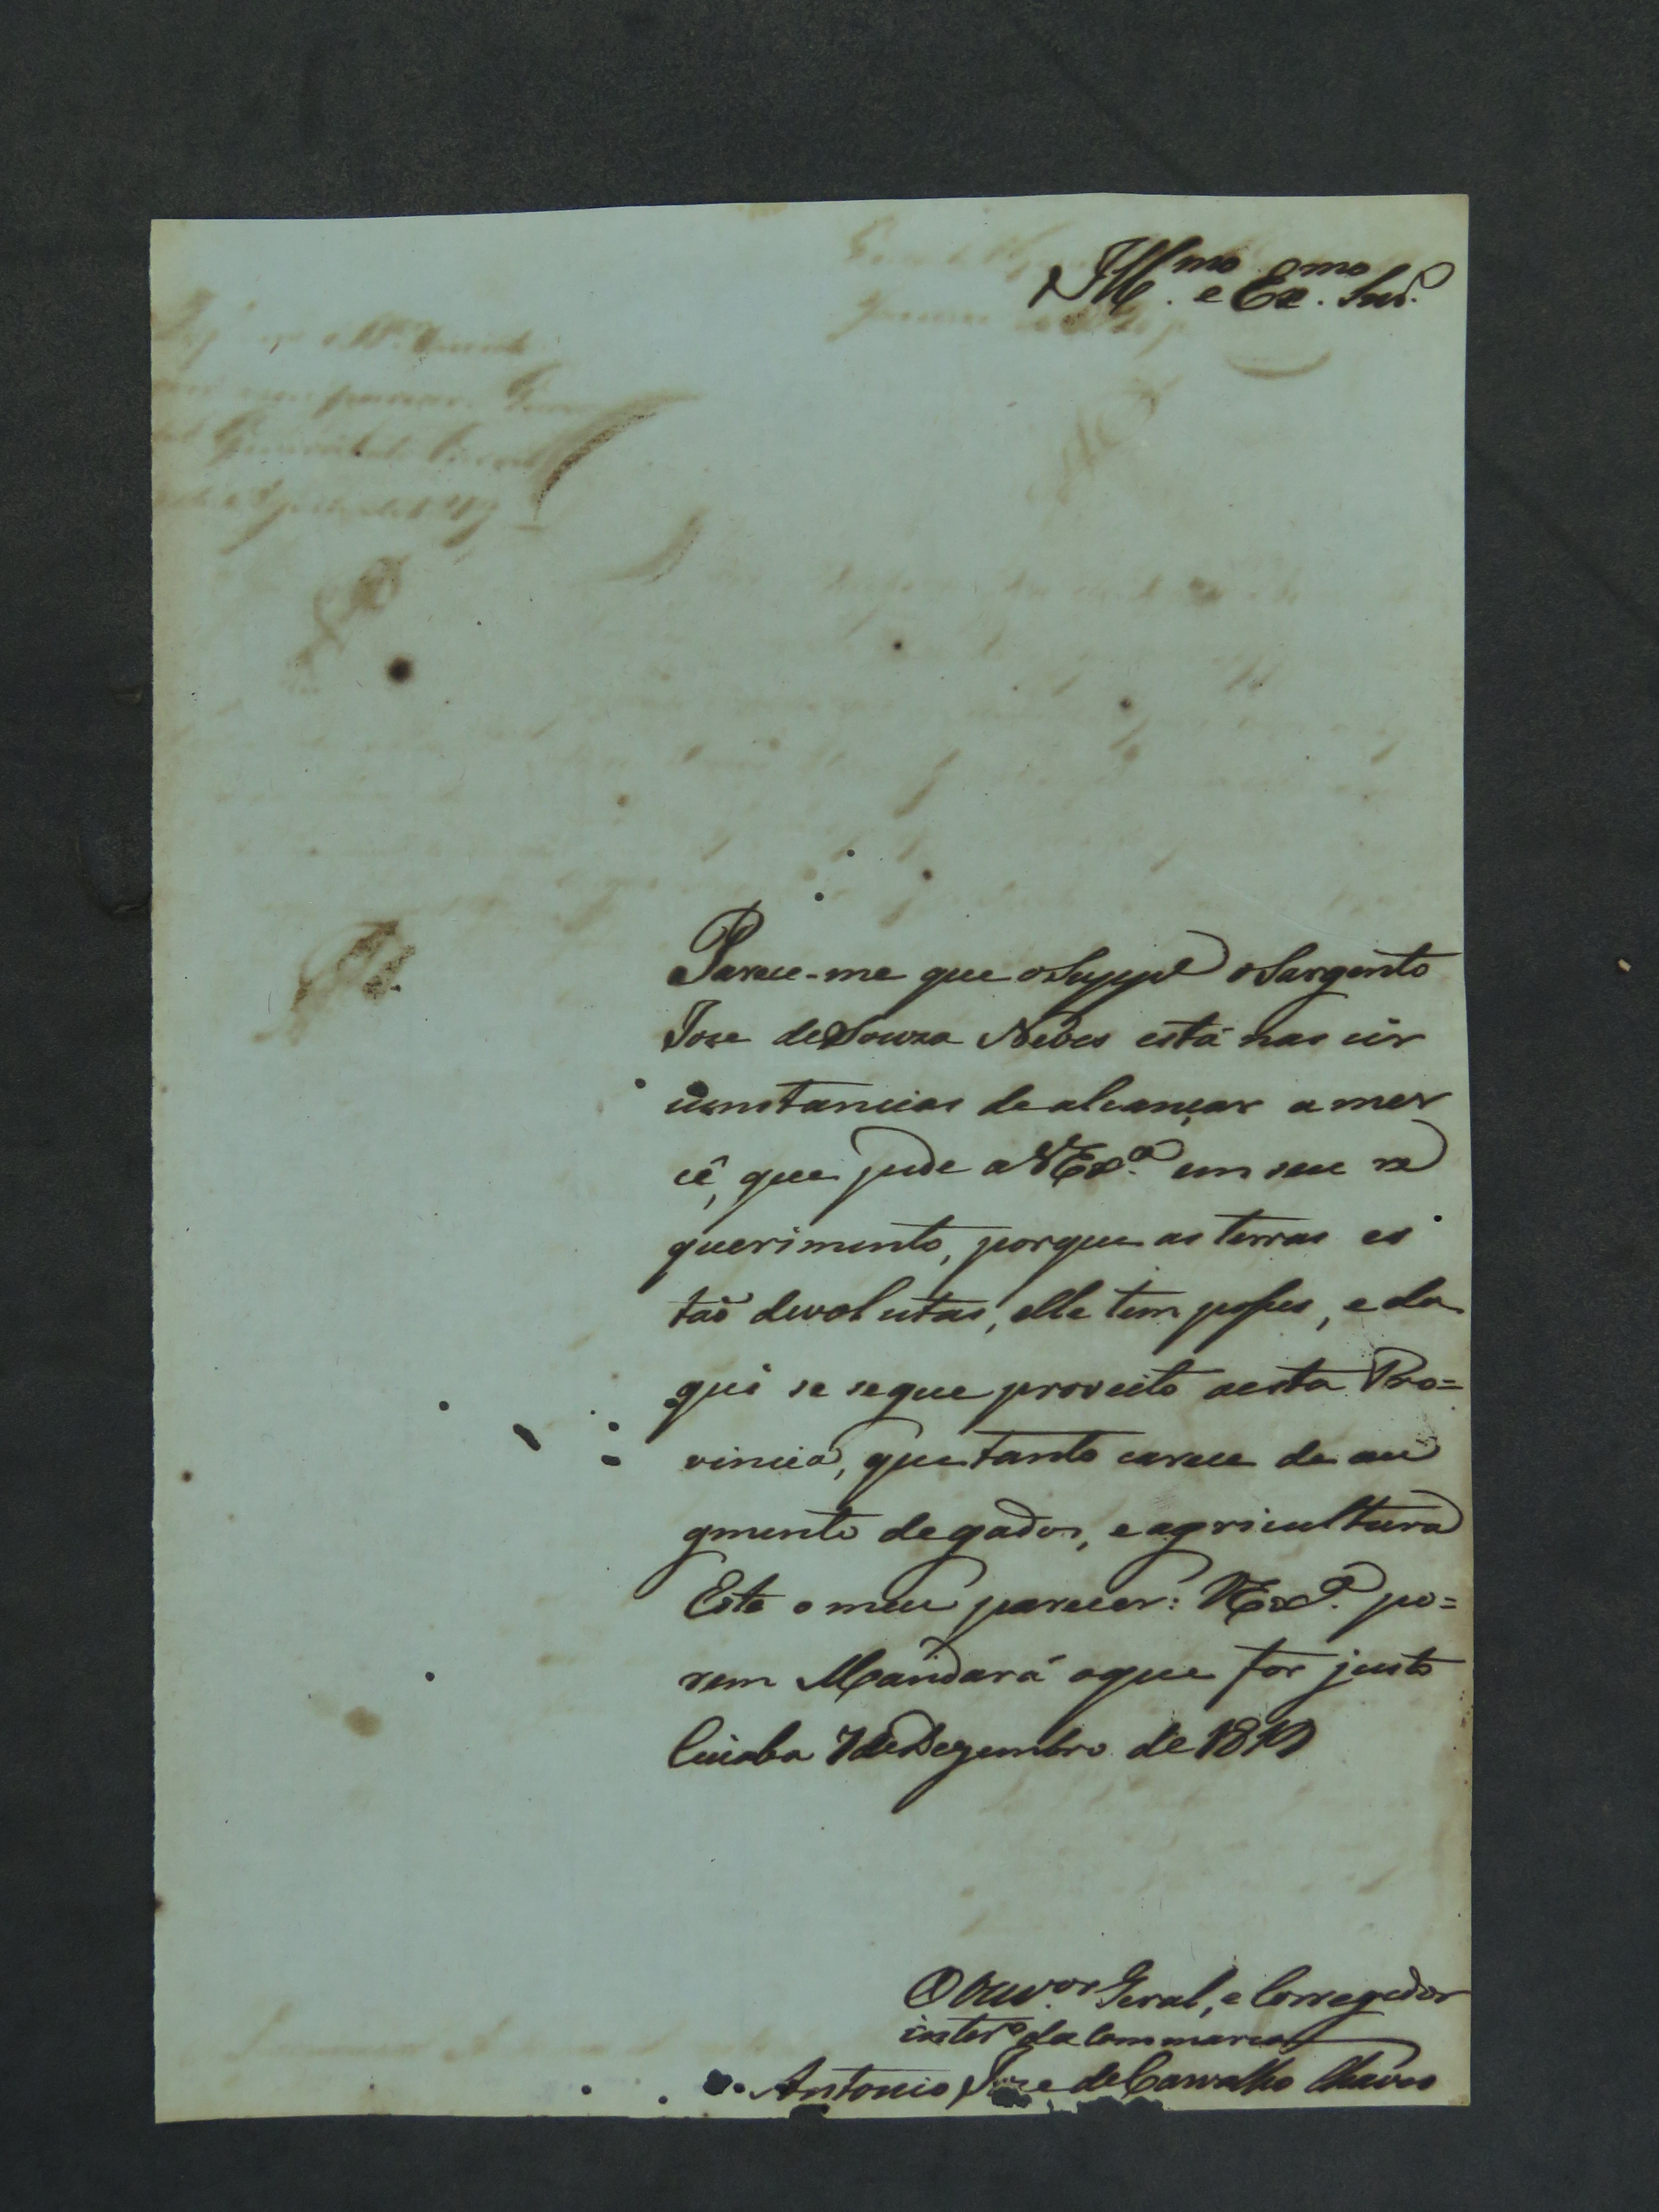 Ill.mo e Ex.mo Snr.
Parece-me que o Supp.e o Sargento
Joze de Souza Neves está nas cir
cunstancias de alcançar a mer
cê, que pede a VEx.a em seu re
querimento, porque as terras es
tão devolutas, elle tem posses, e da
qui se segue proveito a esta Pro=
vincia, que tanto carece de au
gmento de gados, e agricultura
Este o meu parecer: VEx.a po=
rem Mandará o que for justo
Cuiaba 7 de Dezembro de 1819
O Ouv.or Geral, e Corregedor
inter.o da Commarca
Antonio Joze de Carvalho Chaves